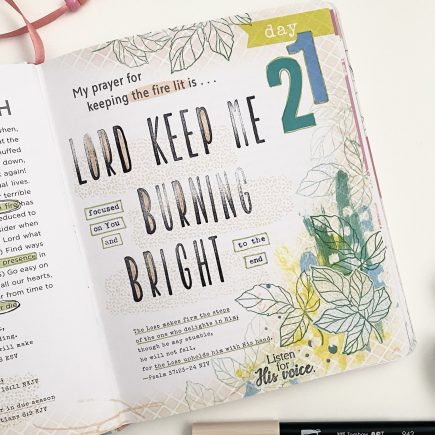 day
21
My prayer for
keeping the fire lit is . . .
LORD KEEP ME
focused
on You
and
BURNING
BRIGHT
to the
end
The Lord makes firm the steps
of the one who delights in Him;
though he may stumble,
he will not fall,
for the LORD upholds him with His hand.
—Psalm 37:23-24 NIV
Listen
for
His voice.
H
when,
t the
nuffed
down,
again!
ual lives.
terrible
fire has
educed to
sider when
Lord what
) Find ways
presence in
Go easy on
all our hearts,
er from time to
er die
ing.
will make
ESV
16:11 NKJV
r in due season
tians 6:9 KJV
Tombow ART
942